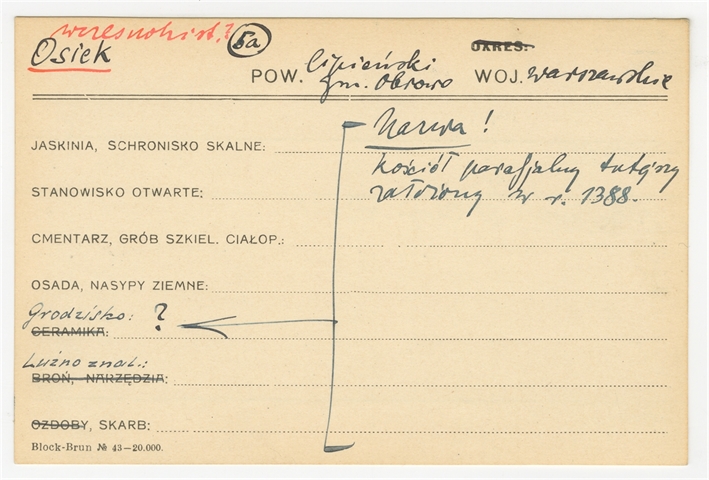 wczesnohist.?
Osiek 5a
OKRES:
POW. lipieński WOJ. warszawskie
gm. Obrowo
Nazwa!
JASKINIA, SCHRONISKO SKALNE:
kościół parafjalny tutejszy
STANOWISKO OTWARTE:
założony w r. 1388.
CMENTARZ, GRÓB SZKIEL. CIAŁOP.:
OSADA, NASYPY ZIEMNE:
Grodzisko: ?
CERAMIKA:
Luźno znal.:
BROŃ, NARZĘDZIA:
OZDOBY, SKARB:
Block-Brun № 43—20.000.